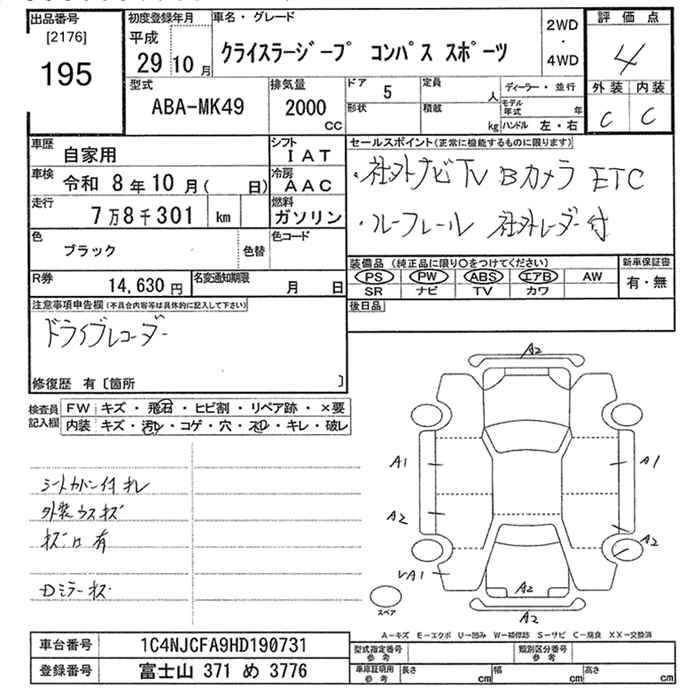 出品番号
[2176]
195
初度登録年月
平成
29年10月
車名・グレード
クライスラージープ コンパス スポーツ
2WD
・
4WD
評価点
4
外装 内装
C C
型式
ABA-MK49
排気量
2000
CC
ドア 5
形状
定員 人
積載 kg
ディーラー・並行
モデル年式 年
ハンドル 左・右
車歴
自家用
シフト
IAT
車検 令和 8年10月( 日)
冷房
AAC
走行
7万8千301 km
燃料
ガソリン
色
ブラック
色替
色コード
R券
14,630円
名変通知期限
月 日
セールスポイント(正常に機能するものに限ります)
・社外ナビ TV Bカメラ ETC
・ルーフレール 社外レーダー付
装備品(純正品に限り〇をつけてください)
PS PW ABS エアB AW
SR ナビ TV カワ
新車保証書
有・無
後日品
注意事項申告欄(不具合内容等は具体的に記入して下さい)
ドライブレコーダー
修復歴 有〔箇所 〕
検査員記入欄
FW キズ・飛石・ヒビ割・リペア跡・×要
内装 キズ・汚レ・コゲ・穴・スレ・キレ・破レ
シートカバー付 オレ
外装 ウスキズ
キズ凹有
Dミラーキズ
A2
A1
A1
A2
A2
VA1
A2
A2
スペア
A-キズ E-エクボ U-凹み W-補修跡 S-サビ C-腐食 XX-交換済
車台番号
1C4NJCFA9HD190731
登録番号
富士山 371 め 3776
型式指定番号
参考
類別区分番号
参考
車庫証明用
参考
長さ cm
幅 cm
高さ cm